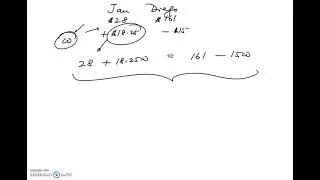 Jan Diego
$28 $161
w + $18.25 - $15
28 + 18.25w = 161 - 15w